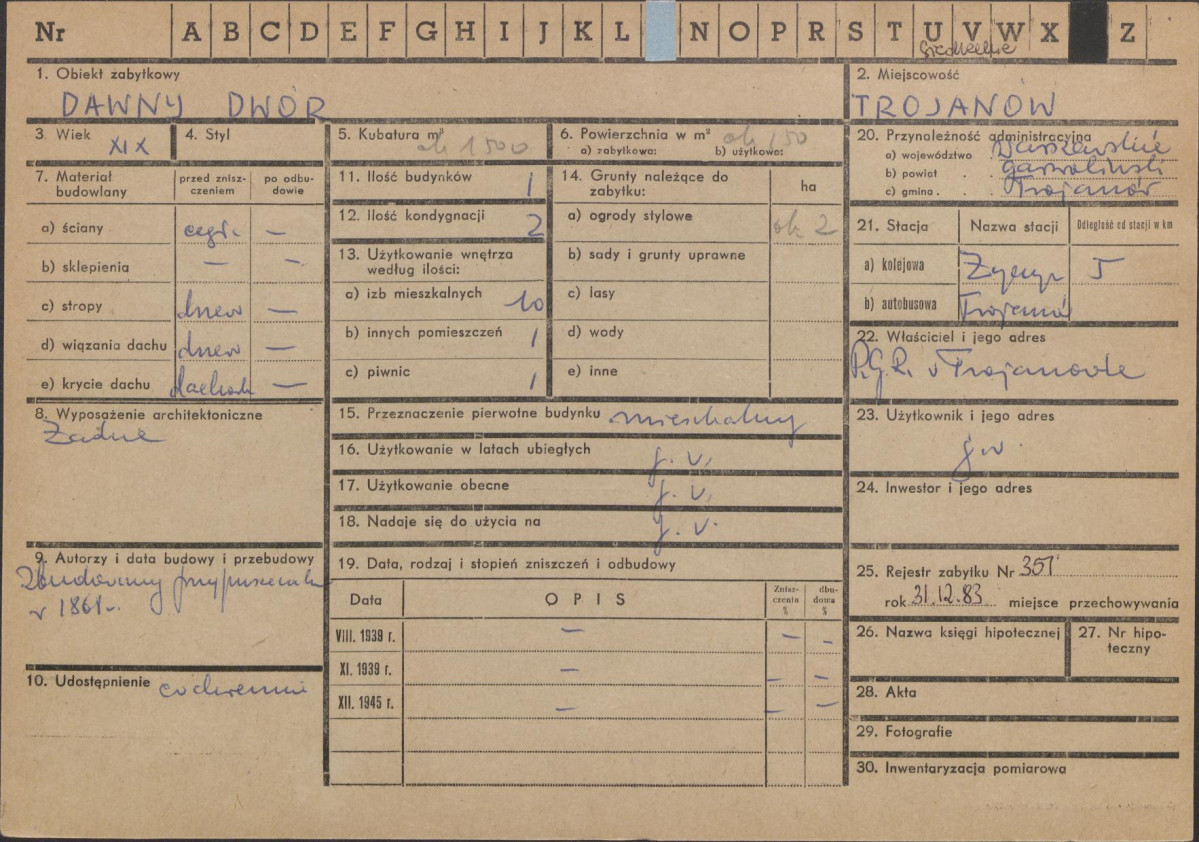 Nr A B C D E F G H I J K L N O P R S T U V W X Z
siedleckie
1. Obiekt zabytkowy
DAWNY DWÓR
2. Miejscowość
TROJANÓW
3. Wiek XIX
4. Styl
5. Kubatura m³ ok 1500
6. Powierzchnia w m² ok 150
a) zabytkowa: b) użytkowa:
20. Przynależność administracyjna
a) województwo Warszawskie
b) powiat garwoliński
c) gmina Trojanów
7. Materiał budowlany
przed zniszczeniem
po odbudowie
a) ściany cegł. —
b) sklepienia — —
c) stropy drew —
d) wiązania dachu drew —
e) krycie dachu dachówk —
8. Wyposażenie architektoniczne
Żadne
9. Autorzy i data budowy i przebudowy
Zbudowany przypuszczaln
w 1861 r.
10. Udostępnienie codziennie
11. Ilość budynków 1
12. Ilość kondygnacji 2
13. Użytkowanie wnętrza
według ilości:
a) izb mieszkalnych 10
b) innych pomieszczeń 1
c) piwnic 1
14. Grunty należące do
zabytku:
ha
a) ogrody stylowe ok 2
b) sady i grunty uprawne
c) lasy
d) wody
e) inne
15. Przeznaczenie pierwotne budynku mieszkalny
16. Użytkowanie w latach ubiegłych j. w.
17. Użytkowanie obecne j. w.
18. Nadaje się do użycia na j. w.
19. Data, rodzaj i stopień zniszczeń i odbudowy
Data
OPIS
Zniszczenia %
dbudowa %
VIII. 1939 r. — — —
XI. 1939 r. — — —
XII. 1945 r. — — —
21. Stacja
Nazwa stacji
Odległość od stacji w km
a) kolejowa Życzyn 5
b) autobusowa Trojanów
22. Właściciel i jego adres
P.G.R. w Trojanowie
23. Użytkownik i jego adres
j.w.
24. Inwestor i jego adres
25. Rejestr zabytku Nr 351
rok 31.12.83 miejsce przechowywania
26. Nazwa księgi hipotecznej
27. Nr hipoteczny
28. Akta
29. Fotografie
30. Inwentaryzacja pomiarowa